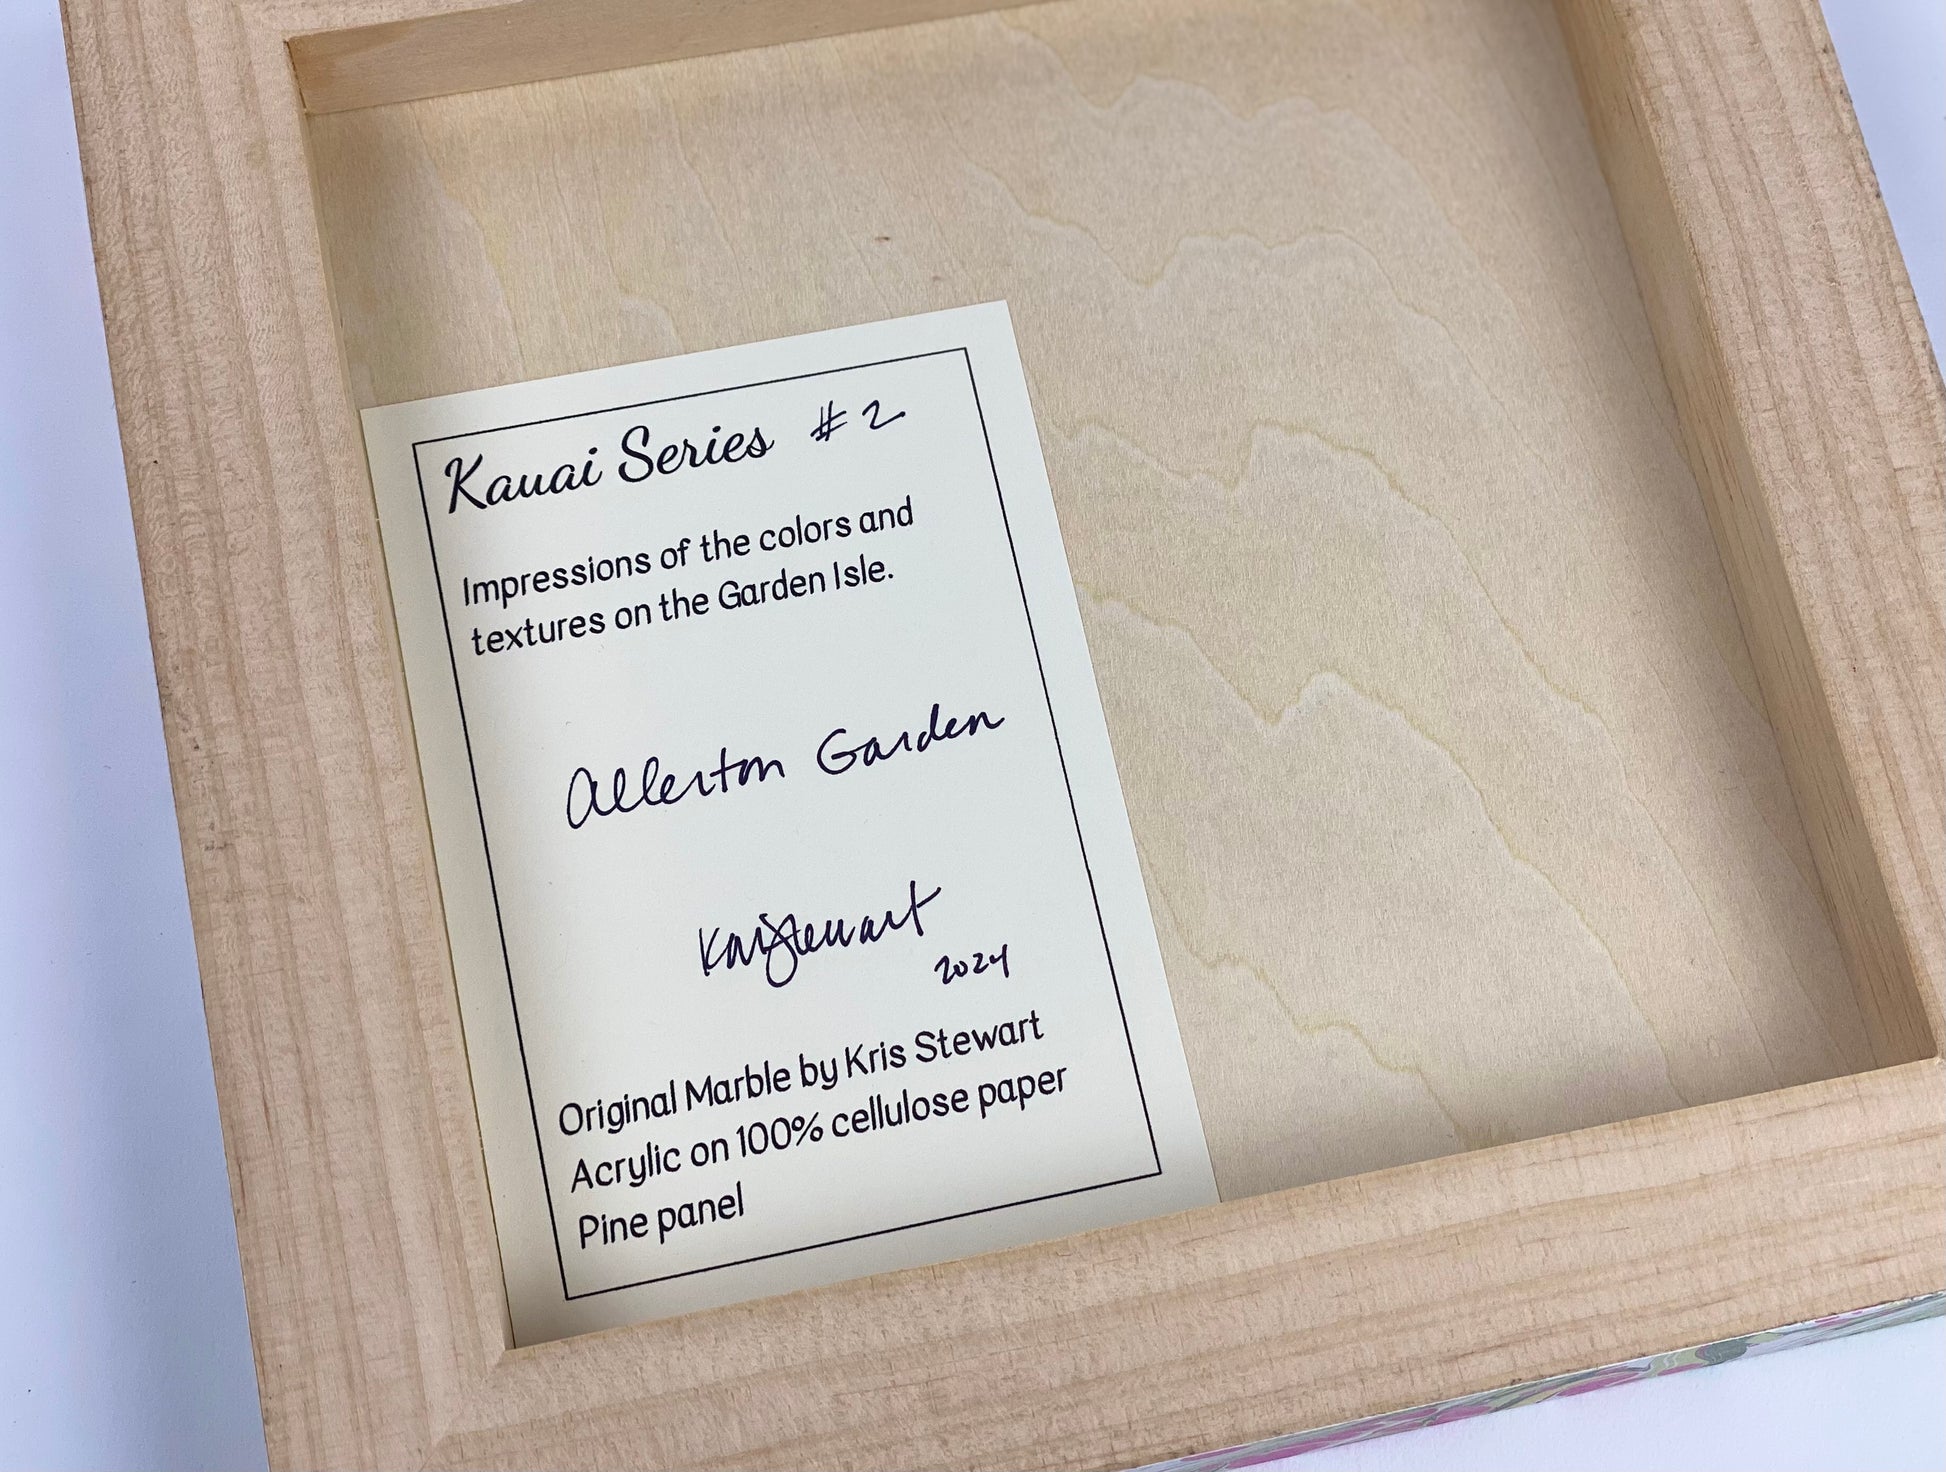 Kauai Series #2
Impressions of the colors and
textures on the Garden Isle.
Allerton Garden
Kris Stewart
2024
Original Marble by Kris Stewart
Acrylic on 100% cellulose paper
Pine panel